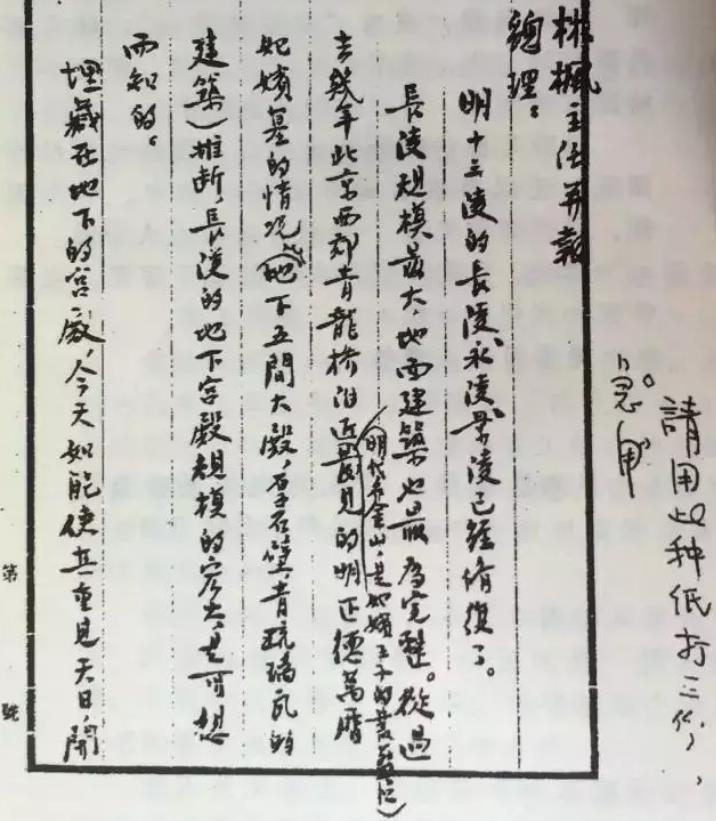 請用此种纸打三份，
急用
林楓主任并報
總理：
明十三陵的長陵、永陵、景陵已經修復了。
長陵規模最大，地面建築也最為完整。從過
去幾年北京西郊青龍橋附近發見的明正德萬曆
（明代名金山，是妃嬪王子的叢葬區）
妃嬪墓的情况（地下五間大殿，白石築青琉璃瓦的
建築）推断，長陵的地下宫殿規模的宏大，是可想
而知的。
埋藏在地下的宫殿，今天如能使其重見天日，開
第 號